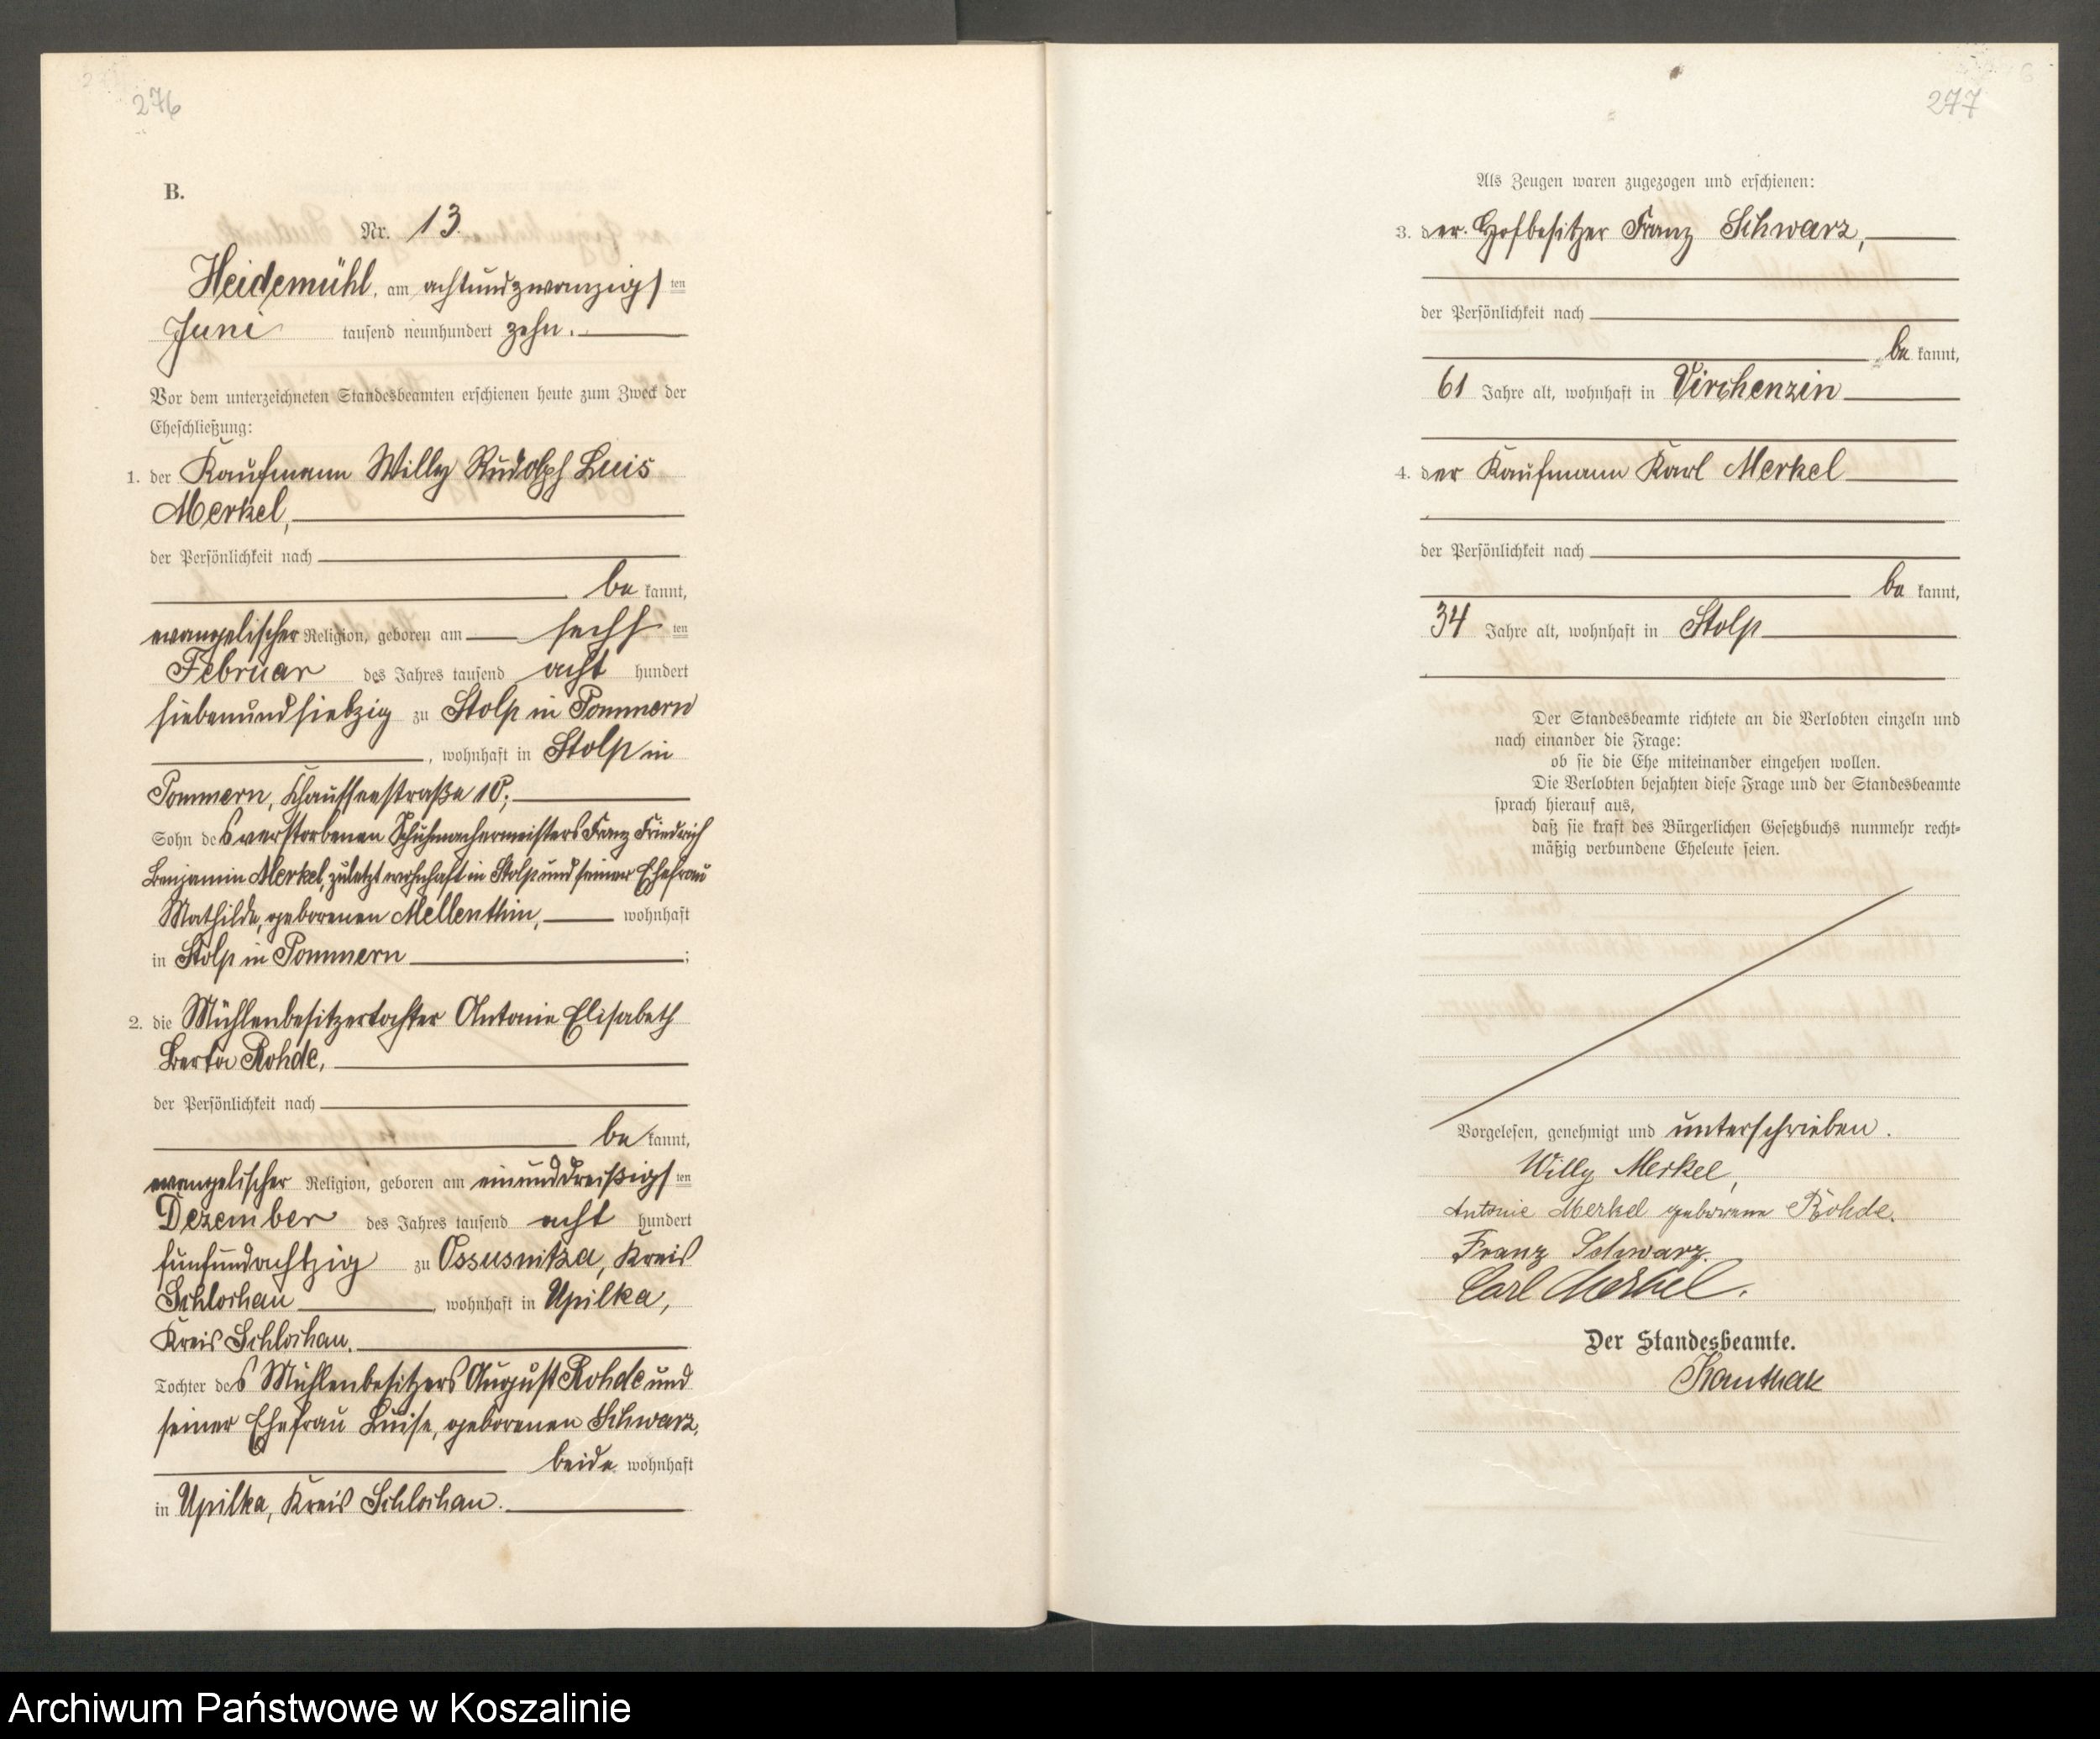 276
B.
Nr. 13.
Heidemühl, am achtundzwanzigsten
Juni tausend neunhundert zehn.
Vor dem unterzeichneten Standesbeamten erschienen heute zum Zweck der
Eheschließung:
1. der Kaufmann Willy Rudolph Luis
Merkel,
der Persönlichkeit nach
bekannt,
evangelischer Religion, geboren am sechsten
Februar des Jahres tausend acht hundert
siebenundsiebzig zu Stolp in Pommern
, wohnhaft in Stolp in
Pommern, Chausseestraße 10;
Sohn des verstorbenen Schuhmachermeisters Franz Friedrich
Benjamin Merkel, zuletzt wohnhaft in Stolp und seiner Ehefrau
Mathilde, geborenen Mellenthin, wohnhaft
in Stolp in Pommern ;
2. die Mühlenbesitzertochter Antonie Elisabeth
Berta Rohde,
der Persönlichkeit nach
bekannt,
evangelischer Religion, geboren am einunddreißigsten
Dezember des Jahres tausend acht hundert
fünfundachtzig zu Ossusnitza, Kreis
Schlochau, wohnhaft in Upilka,
Kreis Schlochau.
Tochter des Mühlenbesitzers August Rohde und
seiner Ehefrau Luise, geborenen Schwarz,
beide wohnhaft
in Upilka, Kreis Schlochau.
277
Als Zeugen waren zugezogen und erschienen:
3. der Hofbesitzer Franz Schwarz,
der Persönlichkeit nach
bekannt,
61 Jahre alt, wohnhaft in Virchenzin
4. der Kaufmann Karl Merkel
der Persönlichkeit nach
bekannt,
34 Jahre alt, wohnhaft in Stolp
Der Standesbeamte richtete an die Verlobten einzeln und
nach einander die Frage:
ob sie die Ehe miteinander eingehen wollen.
Die Verlobten bejahten diese Frage und der Standesbeamte
sprach hierauf aus,
daß sie kraft des Bürgerlichen Gesetzbuchs nunmehr recht-
mäßig verbundene Eheleute seien.
Vorgelesen, genehmigt und unterschrieben.
Willy Merkel,
Antonie Merkel geborene Rohde.
Franz Schwarz.
Carl Merkel.
Der Standesbeamte.
Kanthak
Archiwum Państwowe w Koszalinie